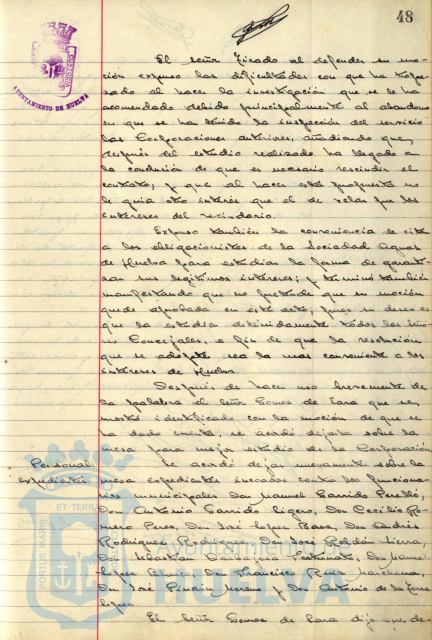 48
AYUNTAMIENTO DE HUELVA
El señor Tirado al defender su mo-
ción expuso las dificultades con que ha trope-
zado al hacer la investigación que se le ha
encomendado debido principalmente al abandono
en que se ha tenido la inspección del servicio
las Corporaciones anteriores, añadiendo que,
después del estudio realizado ha llegado a
la conclusión de que es necesario rescindir el
contrato, y que al hacer esta propuesta no
le guia otro interés que el de velar por los
intereses del vecindario.
Expuso también la conveniencia de cita
a los obligacionistas de la Sociedad Aguas
de Huelva para estudiar la forma de garanti-
zar sus legitimos intereses; y terminó también
manifestando que no pretende que su moción
quede aprobada en este acto, pues su deseo es
que la estudien detenidamente todos los Seño-
res Concejales, a fin de que la resolución
que se adopte sea la mas conveniente a los
intereses de Huelva.
Después de hacer uso brevemente de
la palabra el Señor Gomes de Lara que se
mostró identificado con la moción de que se
ha dado cuenta, se acordó dejarla sobre la
mesa para mejor estudio de la Corporación.
Personal. Se acordó dejar nuevamente sobre la
expedientes mesa expedientes incoados contra los funciona-
rios municipales Don Manuel Garrido Perelló,
Don Antonio Garrido Ligero, Don Cecilio Ro-
mero Peres, Don José Lopez Baez, Don Andrés
Rodriguez Rodriguez, Don José Roldán Sierra,
Don Sebastian Santana Fortunato, Don Manuel
Lopez, Don Francisco
Don José Pinzón Moreno y Don Antonio de la Torre
Lopez.
El Señor Gomes de Lara dijo que de-
PORTUS MARIS ET TERRAE
Ayuntamiento de
HUELVA